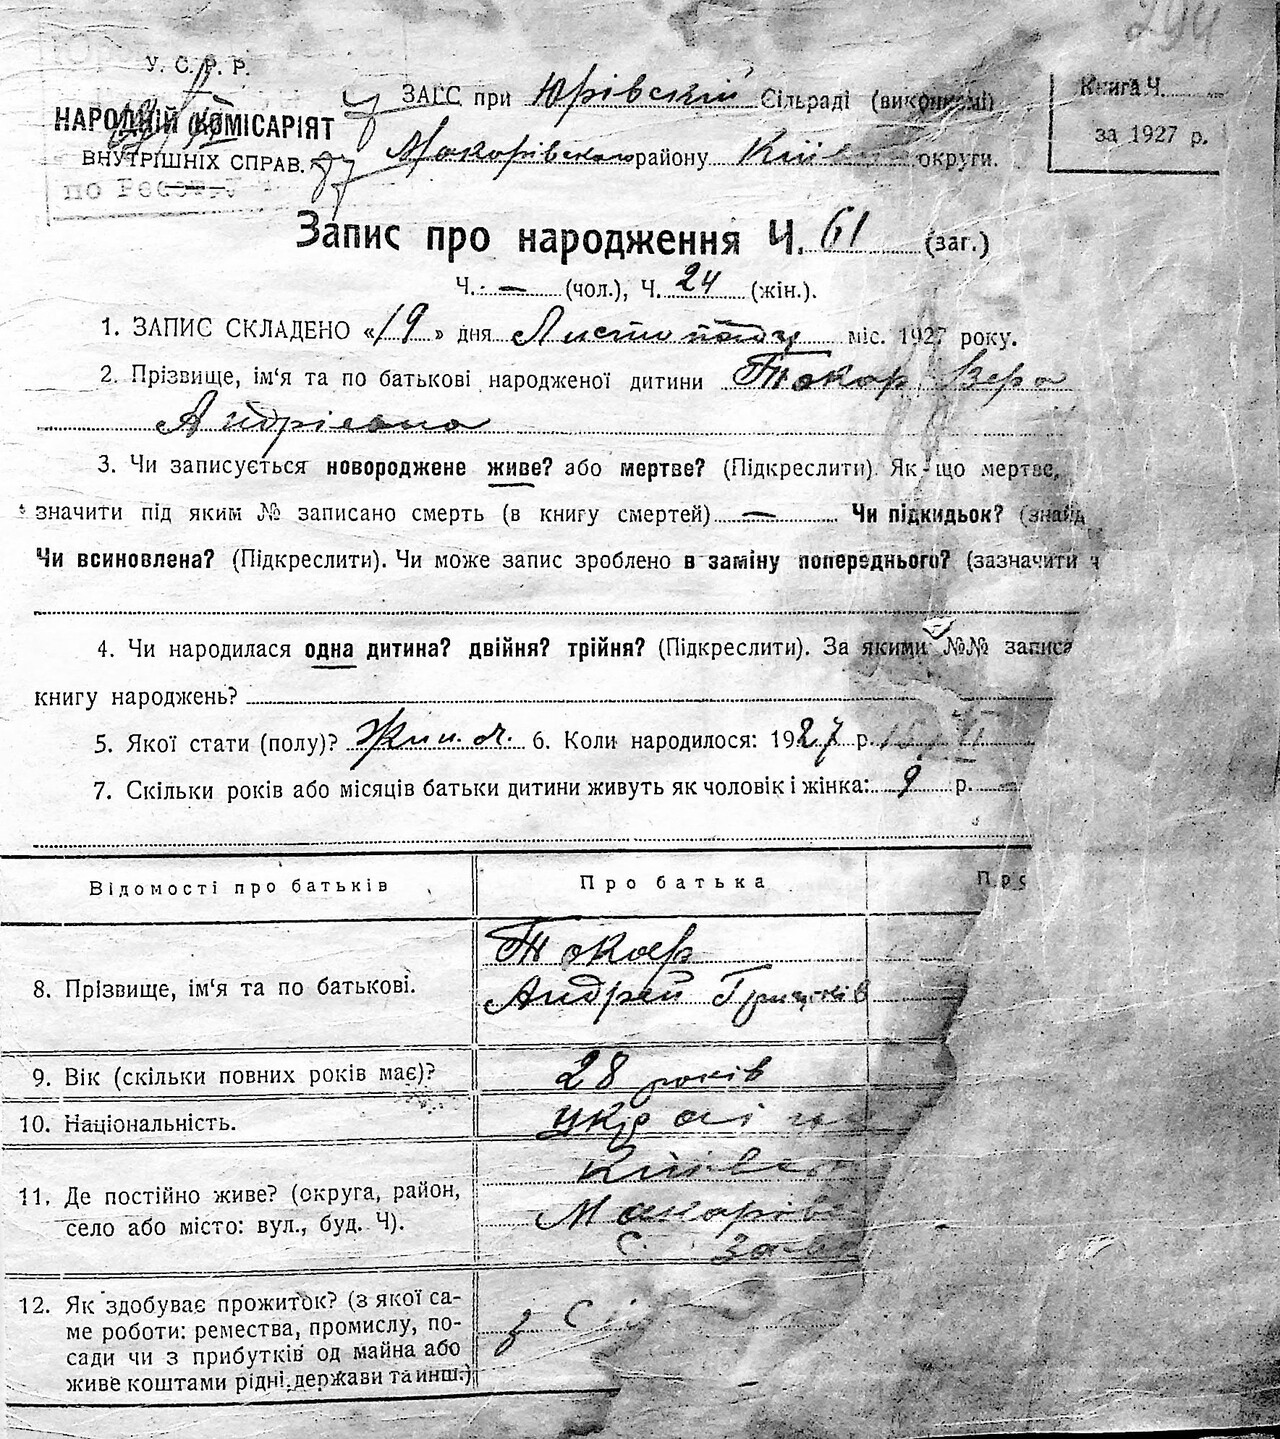 294
У. С. Р. Р.
НАРОДНІЙ КОМІСАРІЯТ
ВНУТРІШНІХ СПРАВ.
ЗАГС при Юрівскій Сільраді (виконкомі)
Макорівского району Київ округи.
Книга Ч.
за 1927 р.
Запис про народження Ч. 61 (заг.)
Ч. — (чол.), Ч. 24 (жін.).
1. ЗАПИС СКЛАДЕНО «19» дня Листопаду міс. 1927 року.
2. Прізвище, ім‘я та по батькові народженої дитини Токар Вера
Андріевна
3. Чи записується новороджене живе? або мертве? (Підкреслити). Як-що мертве,
значити під яким № записано смерть (в книгу смертей) — Чи підкидьок? (знайд
Чи всиновлена? (Підкреслити). Чи може запис зроблено в заміну попереднього? (зазначити ч
4. Чи народилася одна дитина? двійня? трійня? (Підкреслити). За якими №№ записа
книгу народжень?
5. Якої стати (полу)? 6. Коли народилося: 1927 р.
7. Скільки років або місяців батьки дитини живуть як чоловік і жінка: 9 р.
Відомості про батьків
Про батька
Пр
8. Прізвище, ім‘я та по батькові.
Токар
Андрей
9. Вік (скільки повних років має)?
28 років
10. Національність.
украі
11. Де постійно живе? (округа, район,
село або місто: вул., буд. Ч).
Київс
Макарівс
с.
12. Як здобуває прожиток? (з якої са-
ме роботи: ремества, промислу, по-
сади чи з прибутків од майна або
живе коштами рідні, держави та инш.)
з